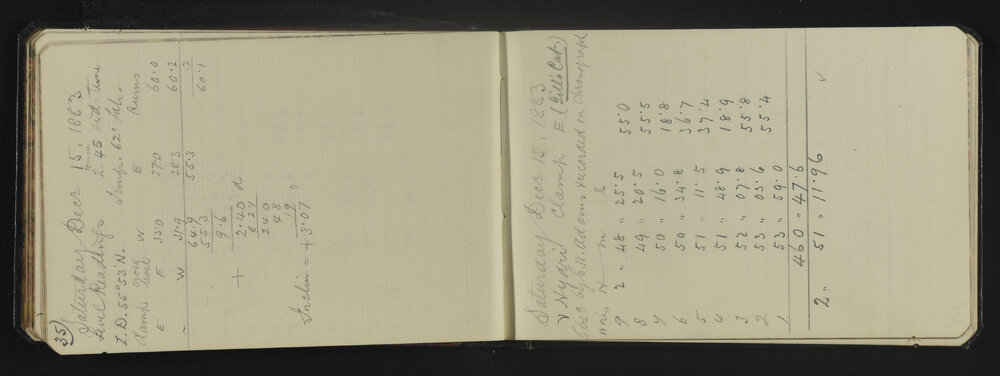 35
Saturday Decr 15, 1883
Level Readings 2 45 sid. time
Z.D. 55°53'N. Temp. 62° Fah.
Lamps cross level W E
E E 33.0 27.0 60.0
W 31.9 28.3 60.2
64.9 55.3 .2
55.3 60.1
9.6
+ 2.40 d
8.24
240
48
19
Inclin = +3.07"
Saturday Decr 15, 1883
ν Hydri Clamp E (Gill's Cat.)
by C.W. Adams & recorded on chronograph
Wires H m s
9 2 " 48 " 25.5 55.0
8 49 " 20.5 55.5
7 50 " 16.0 18.8
6 50 " 34.8 36.7
5 51 " 11.5 37.4
4 51 " 48.9 18.9
3 52 " 07.8 55.8
2 53 " 03.6 55.4
1 53 " 59.0
460 " 47.6
2 " 51 " 11.96 ✓